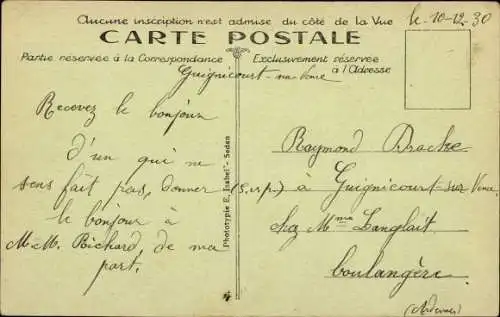 Aucune inscription n'est admise du côté de la Vue
le 10-12-30
CARTE POSTALE
Partie réservée à la Correspondance
Exclusivement réservée
à l'Adresse
Guignicourt-
Recevez le bonjour
d'un qui ne
sens fait pas, donner
le bonjour à
M-M. Bichard, de ma
part.
Phototypie E. Isabel - Sedan
Raymond
à Guignicourt-sur Vence
chez Mme Langlait
boulangère
(Ardennes)